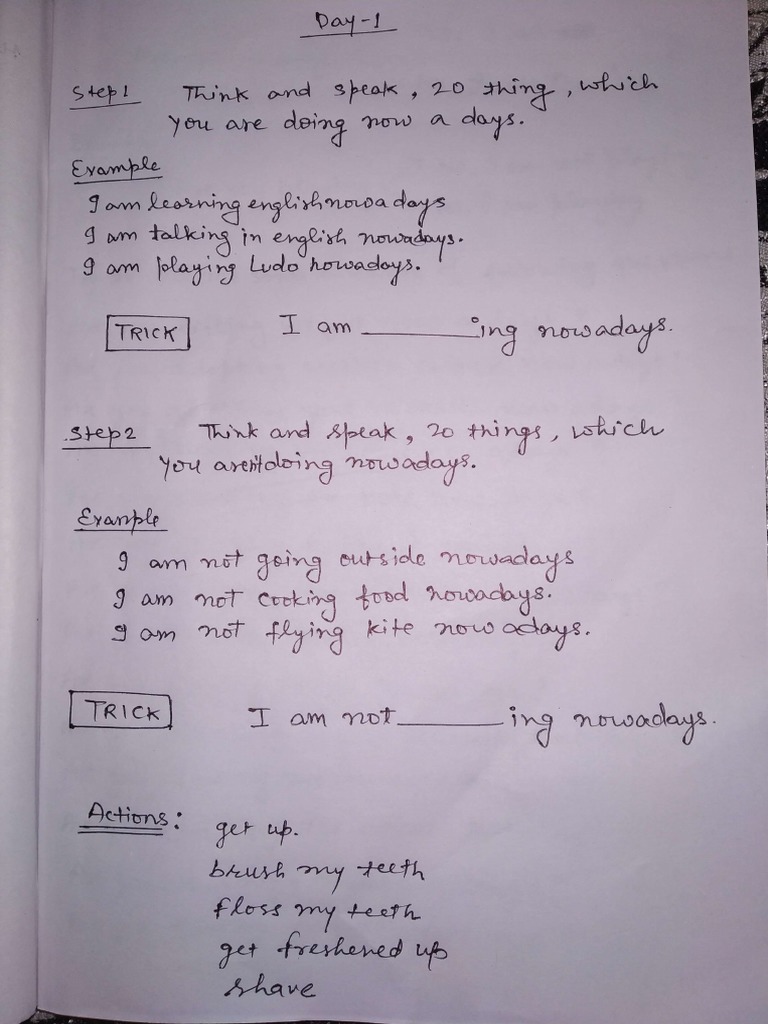 Day-1
Step1 Think and speak, 20 thing, which
you are doing now a days.
Example
I am learning english nowadays
I am talking in english nowadays.
I am playing Ludo nowadays.
TRICK I am ______ing nowadays.
Step2 Think and speak, 20 things, which
you aren't doing nowadays.
Example
I am not going outside nowadays
I am not cooking food nowadays.
I am not flying kite nowadays.
TRICK I am not ______ing nowadays.
Actions: get up.
brush my teeth
floss my teeth
get freshened up
shave